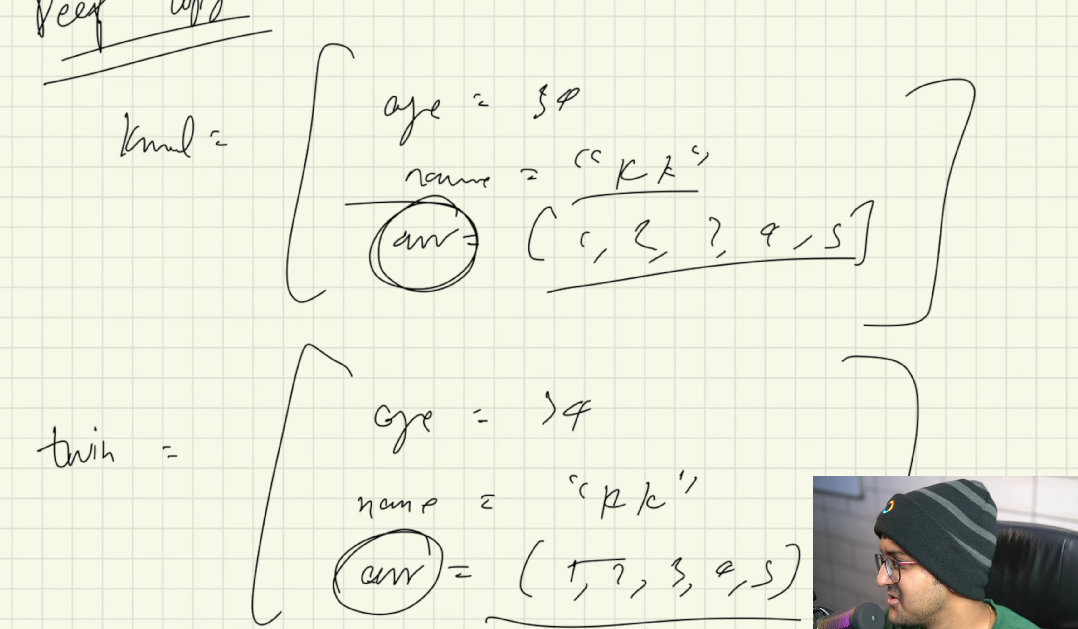 Deep Copy
Kunal =
age = 34
name = "KK"
arr = [1, 2, 3, 4, 5]
twin =
age = 34
name = "KK"
arr = [1, 2, 3, 4, 5]